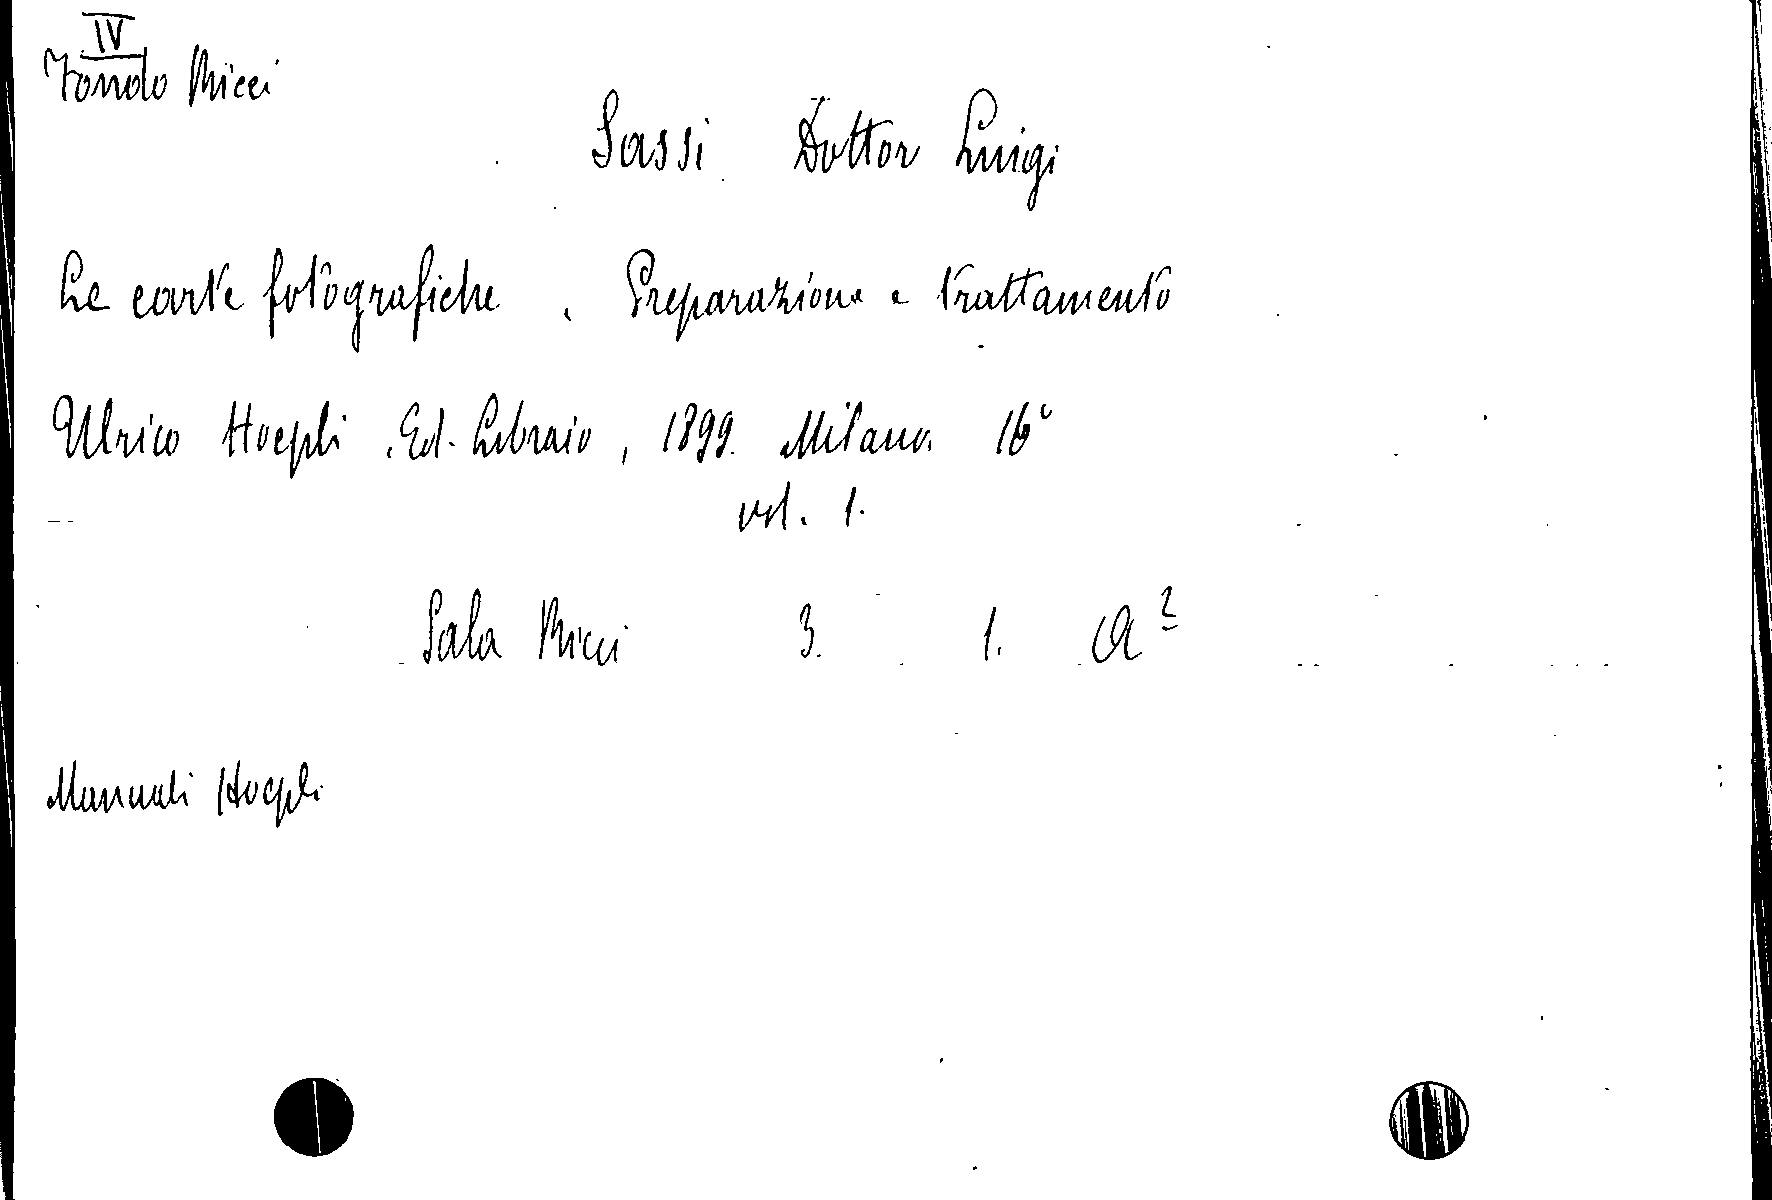 IV
Fondo Ricci
Sassi Dottor Luigi
Le carte fotografiche. Preparazione e trattamento
Ulrico Hoepli. Ed. Libraio, 1899. Milano. 16°
vol. 1.
Sala Ricci 3. 1. a²
Manuali Hoepli